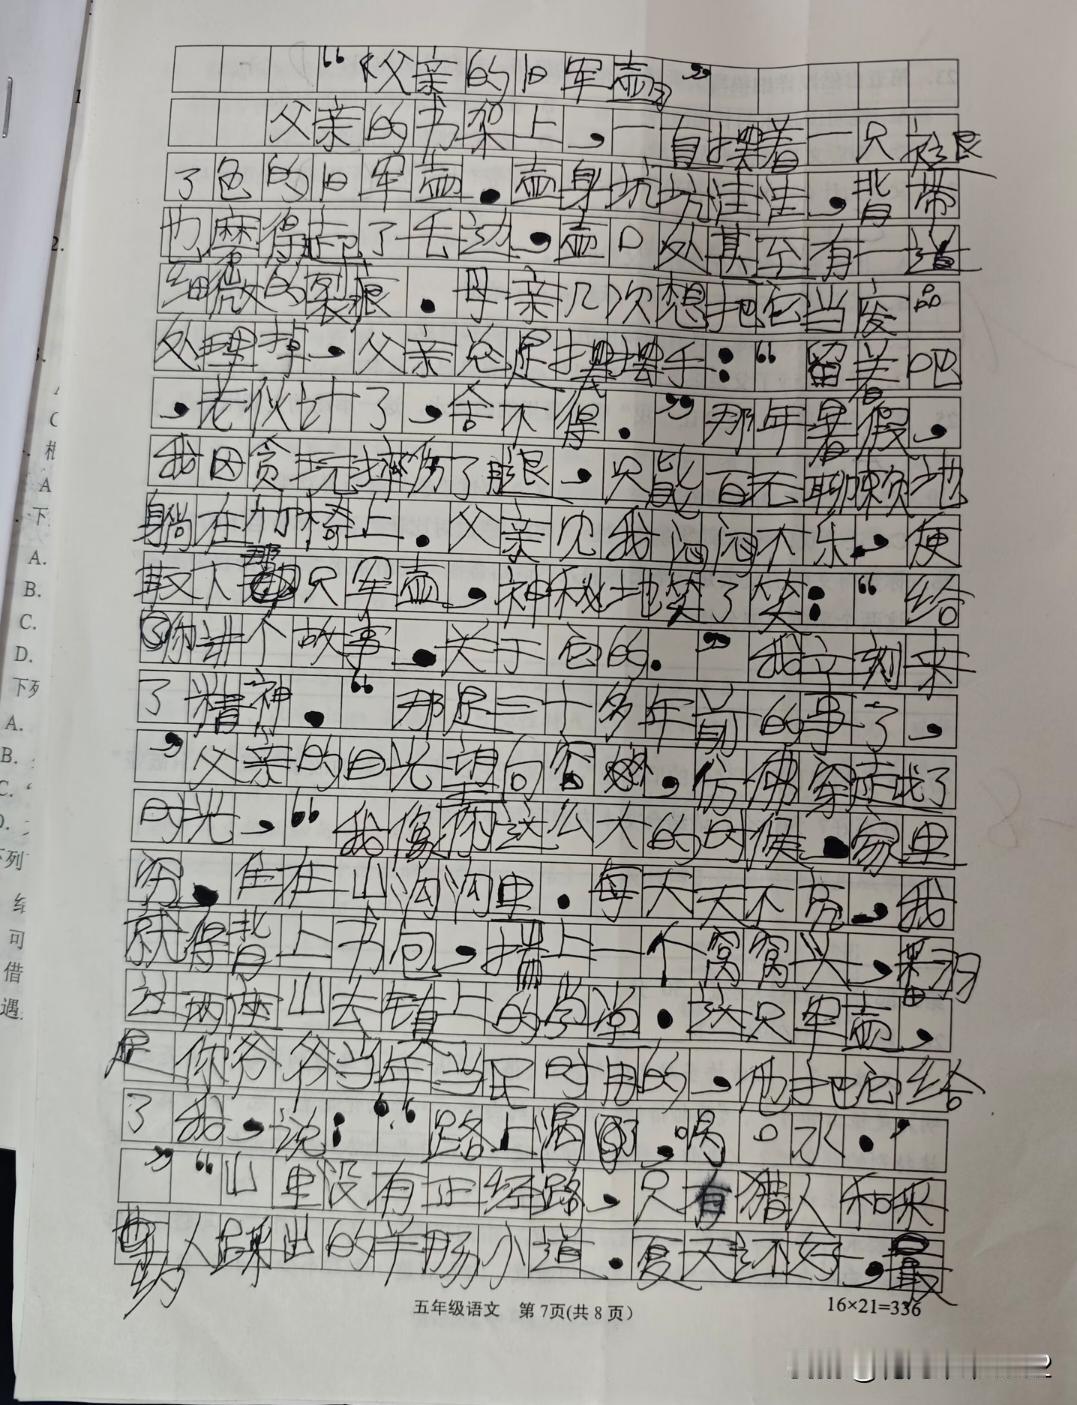 “《父亲的旧军壶》”
父亲的书架上，一直摆着一只褪
了色的旧军壶。壶身坑坑洼洼，背带
也磨得起了毛边。壶口处甚至有一道
细微的裂痕。母亲几次想把它当废品
处理掉，父亲总是摆摆手：“留着吧
，老伙计了，舍不得。”那年暑假，
我因贪玩摔伤了腿，只能百无聊赖地
躺在竹椅上。父亲见我闷闷不乐，便
取下那只军壶，神秘地笑了笑：“给
你讲个故事。关于它的。”我立刻来
了精神。“那是三十多年前的事了，
”父亲的目光望向窗外，仿佛穿越了
时光，“我像你这么大的时候。家里
穷。住在山沟沟里。每天天不亮，我
就得背上书包，揣上一个窝窝头，翻
过两座山去镇上的学堂。这只军壶，
是你爷爷当年当兵时用的，他把它给
了我，说：“路上渴了，喝口水。’
”“山里没有正经路，只有猎人和采
人踩出的羊肠小道。夏天还好，最
五年级语文 第7页(共8页)
16×21=336